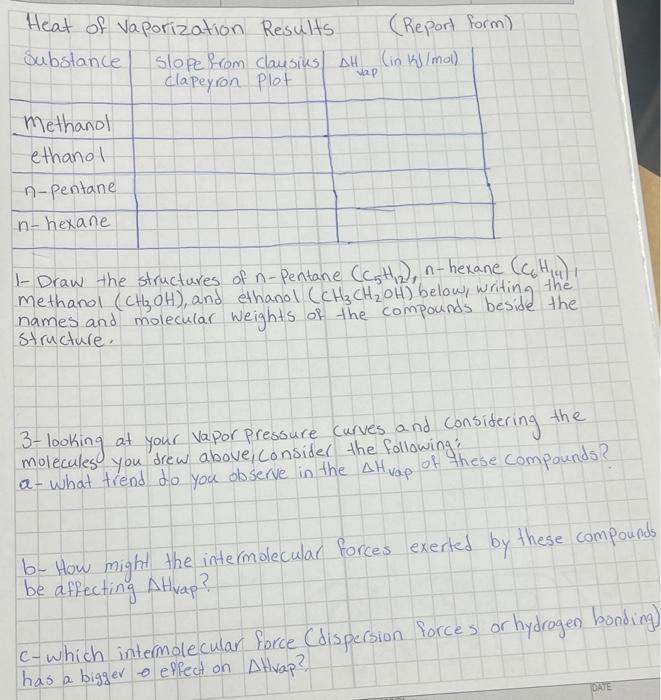 Heat of Vaporization Results (Report form)
Substance slope from clausius clapeyron Plot ΔHvap (in kJ/mol)
methanol
ethanol
n-pentane
n-hexane
1- Draw the structures of n-Pentane (C5H12), n-hexane (C6H14),
methanol (CH3OH), and ethanol (CH3CH2OH) below, writing the
names and molecular weights of the compounds beside the
structure.
3- looking at your vapor pressure curves and considering the
molecules you drew above, consider the following:
a- what trend do you observe in the ΔHvap of these compounds?
b- How might the intermolecular forces exerted by these compounds
be affecting ΔHvap?
c- which intermolecular force (dispersion forces or hydrogen bonding)
has a bigger effect on ΔHvap?
DATE